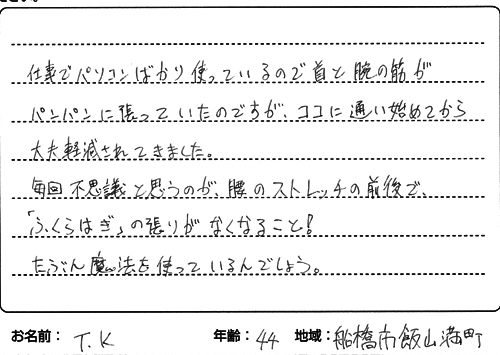 仕事でパソコンばかり使っているので首と腕の筋が
パンパンに張っていたのですが、ココに通い始めてから
大大軽減されてきました。
毎回不思議と思うのが、腰のストレッチの前後で、
「ふくらはぎ」の張りがなくなること!
たぶん魔法を使っているんでしょう。
お名前： T.K 年齢：44 地域：船橋市飯山満町